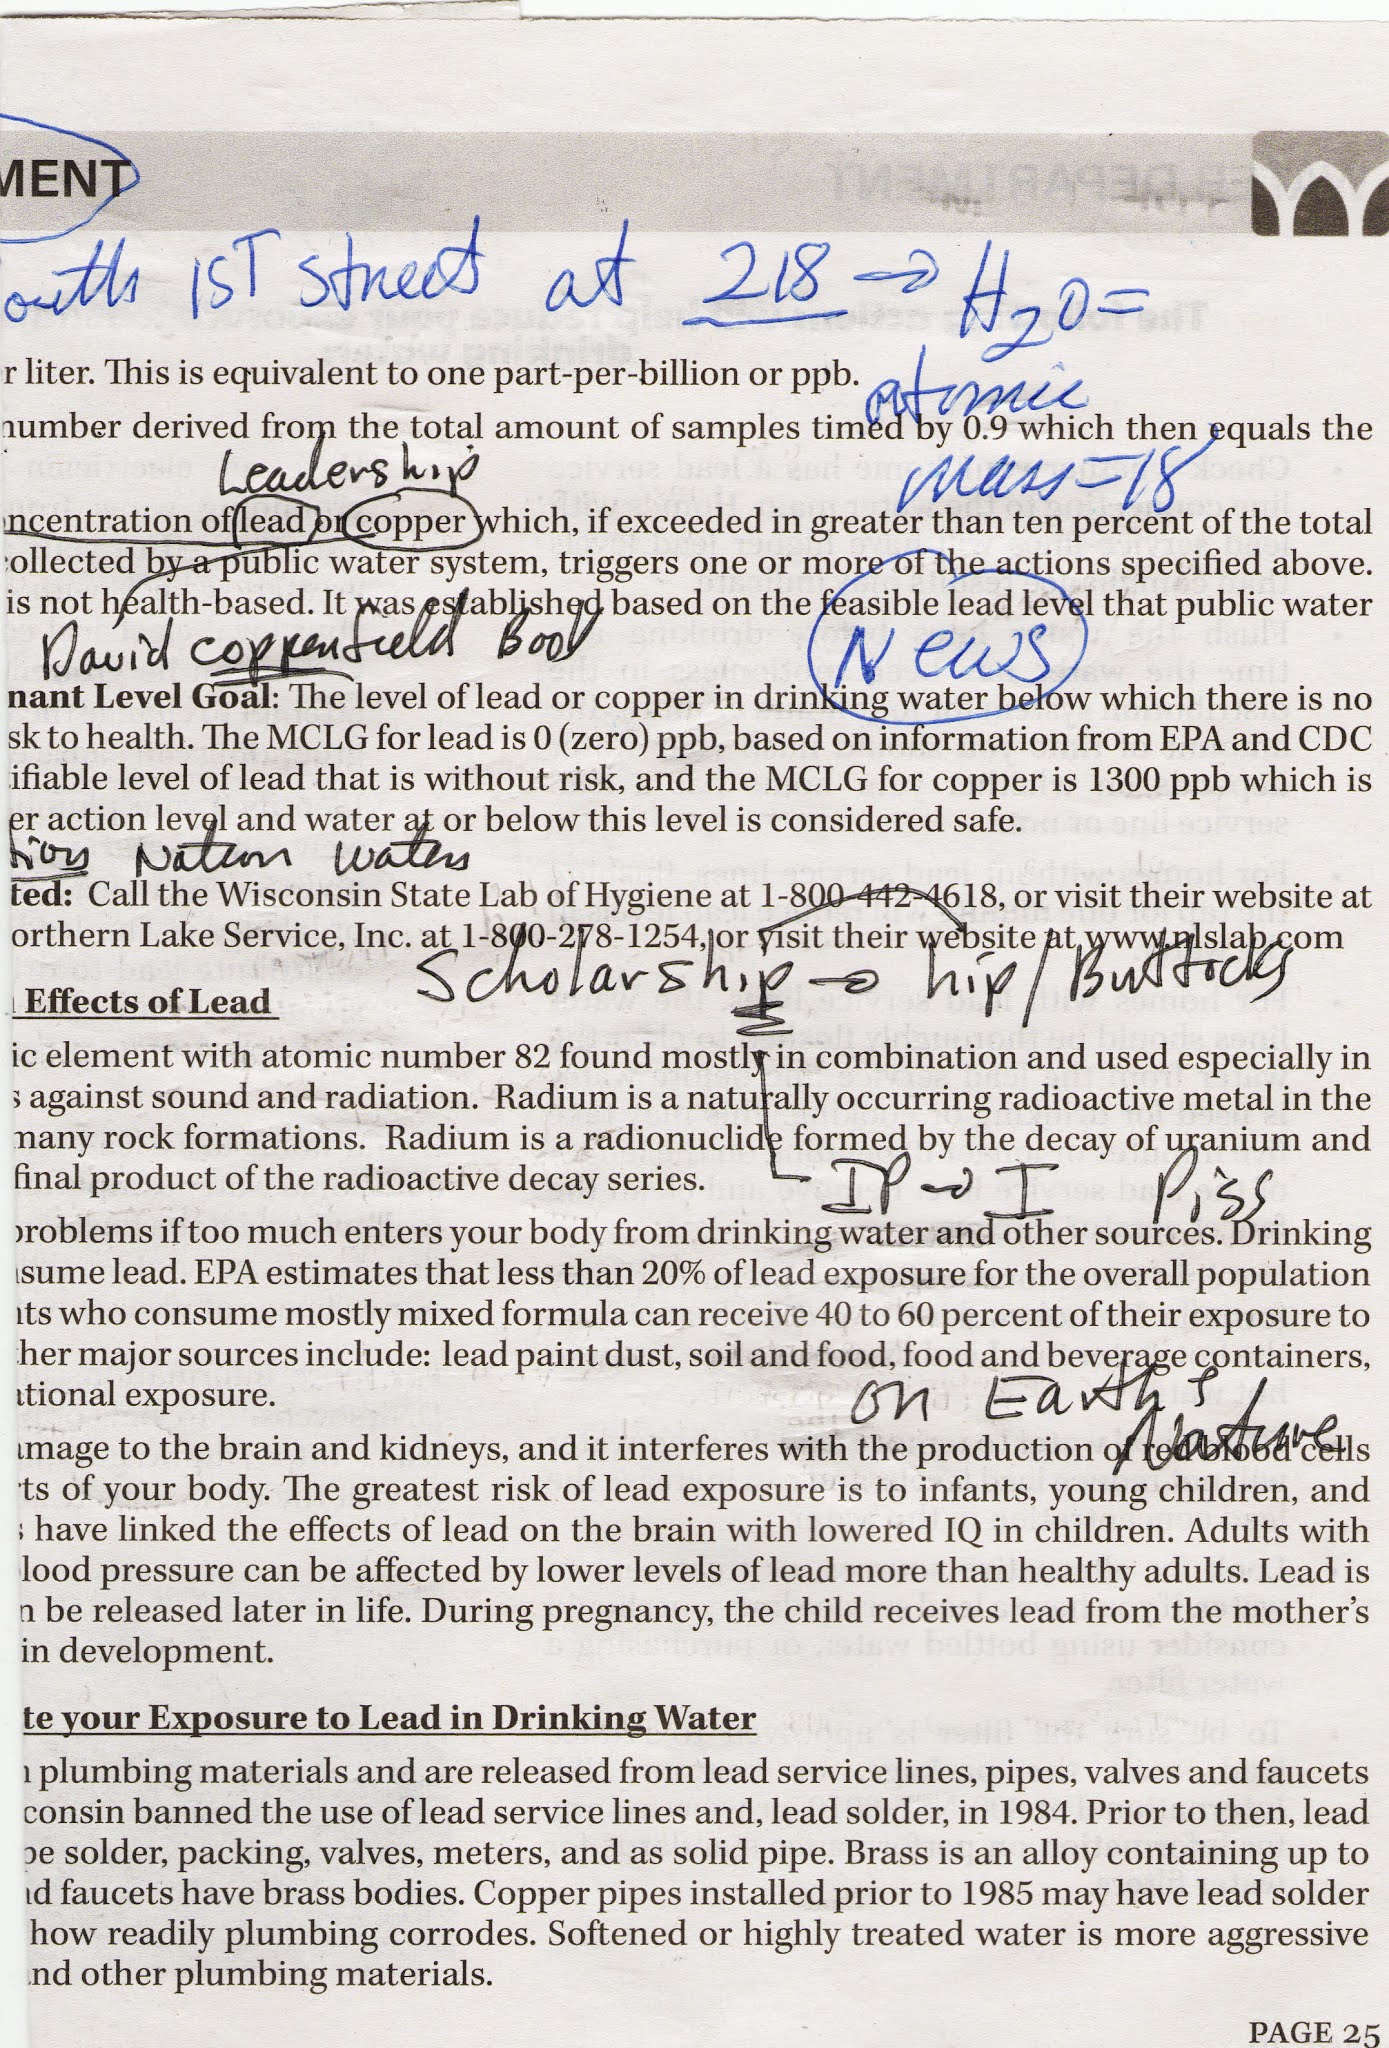 MENT
outh 1ST street at 218 → H2O=
r liter. This is equivalent to one part-per-billion or ppb.
atomic
number derived from the total amount of samples timed by 0.9 which then equals the
Leadership
mass=18
oncentration of lead or copper which, if exceeded in greater than ten percent of the total
collected by a public water system, triggers one or more of the actions specified above.
is not health-based. It was established based on the feasible lead level that public water
David copperfield Book
News
nant Level Goal: The level of lead or copper in drinking water below which there is no
sk to health. The MCLG for lead is 0 (zero) ppb, based on information from EPA and CDC
ifiable level of lead that is without risk, and the MCLG for copper is 1300 ppb which is
er action level and water at or below this level is considered safe.
tion Nation waters
ted: Call the Wisconsin State Lab of Hygiene at 1-800-442-4618, or visit their website at
orthern Lake Service, Inc. at 1-800-278-1254, or visit their website at www.nlslab.com
Scholarship → hip/Buttocks
Effects of Lead
ic element with atomic number 82 found mostly in combination and used especially in
s against sound and radiation. Radium is a naturally occurring radioactive metal in the
many rock formations. Radium is a radionuclide formed by the decay of uranium and
final product of the radioactive decay series.
IP → I Piss
problems if too much enters your body from drinking water and other sources. Drinking
sume lead. EPA estimates that less than 20% of lead exposure for the overall population
nts who consume mostly mixed formula can receive 40 to 60 percent of their exposure to
her major sources include: lead paint dust, soil and food, food and beverage containers,
ational exposure.
on Earth's
Nature
amage to the brain and kidneys, and it interferes with the production of red blood cells
rts of your body. The greatest risk of lead exposure is to infants, young children, and
s have linked the effects of lead on the brain with lowered IQ in children. Adults with
lood pressure can be affected by lower levels of lead more than healthy adults. Lead is
n be released later in life. During pregnancy, the child receives lead from the mother's
in development.
te your Exposure to Lead in Drinking Water
n plumbing materials and are released from lead service lines, pipes, valves and faucets
consin banned the use of lead service lines and, lead solder, in 1984. Prior to then, lead
pe solder, packing, valves, meters, and as solid pipe. Brass is an alloy containing up to
nd faucets have brass bodies. Copper pipes installed prior to 1985 may have lead solder
how readily plumbing corrodes. Softened or highly treated water is more aggressive
nd other plumbing materials.
PAGE 25